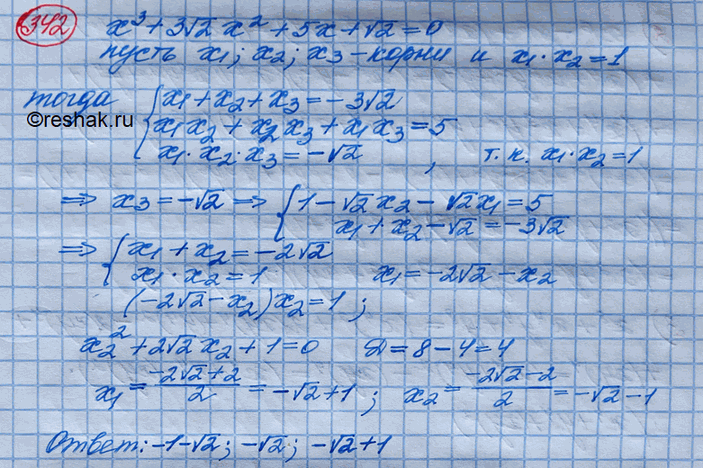 342 x³ + 3√2 x² + 5x + √2 = 0
пусть x₁; x₂; x₃ - корни и x₁ · x₂ = 1
тогда { x₁ + x₂ + x₃ = -3√2
©reshak.ru
x₁x₂ + x₂x₃ + x₁x₃ = 5
x₁ · x₂ · x₃ = -√2 , т.к. x₁ · x₂ = 1
⇒ x₃ = -√2 ⇒ { 1 - √2 x₂ - √2 x₁ = 5
x₁ + x₂ - √2 = -3√2
⇒ { x₁ + x₂ = -2√2
x₁ · x₂ = 1 x₁ = -2√2 - x₂
(-2√2 - x₂) x₂ = 1 ;
x₂² + 2√2 x₂ + 1 = 0 D = 8 - 4 = 4
x₁ = (-2√2 + 2)/2 = -√2 + 1 ; x₂ = (-2√2 - 2)/2 = -√2 - 1
Ответ: -1 - √2; -√2; -√2 + 1